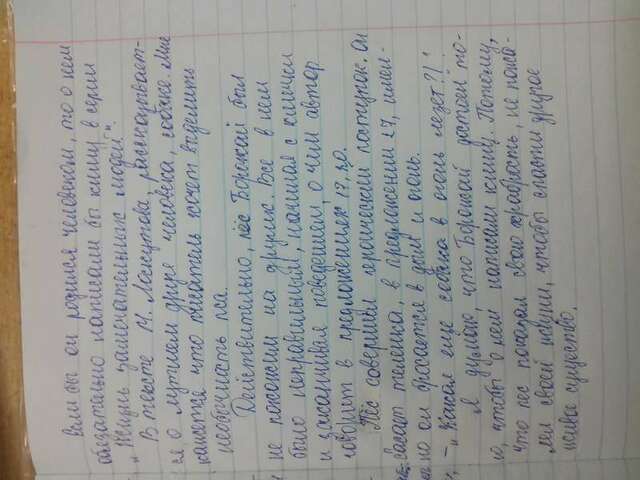 если бы он родился человеком, то о нем
обязательно написали бы книгу в серии
"Жизнь замечательных людей".
В тексте М. Лоскутова, рассказывает-
ся о лучшем друге человека, собаке. Мне
кажется что писатель хочет выделить
необычность пса.
Действительно, пёс Бородой был
не похожим на других. Все в нем
было неправильным, начиная с клички
и заканчивая поведением, о чем автор
говорит в предложениях 17, 20.
Пёс совершил героический поступок. Он
спасает теленка, в предложении 27, имен-
но он бросается в дым и огонь.
- "Какая еще собака в огонь лезет?!"
Я думаю, что Бородой достоин то-
го, чтобы о нем написали книгу. Потому,
что пес показал свою храбрость, не пожа-
лел своей шкуры, чтобы спасти другое
живое существо.